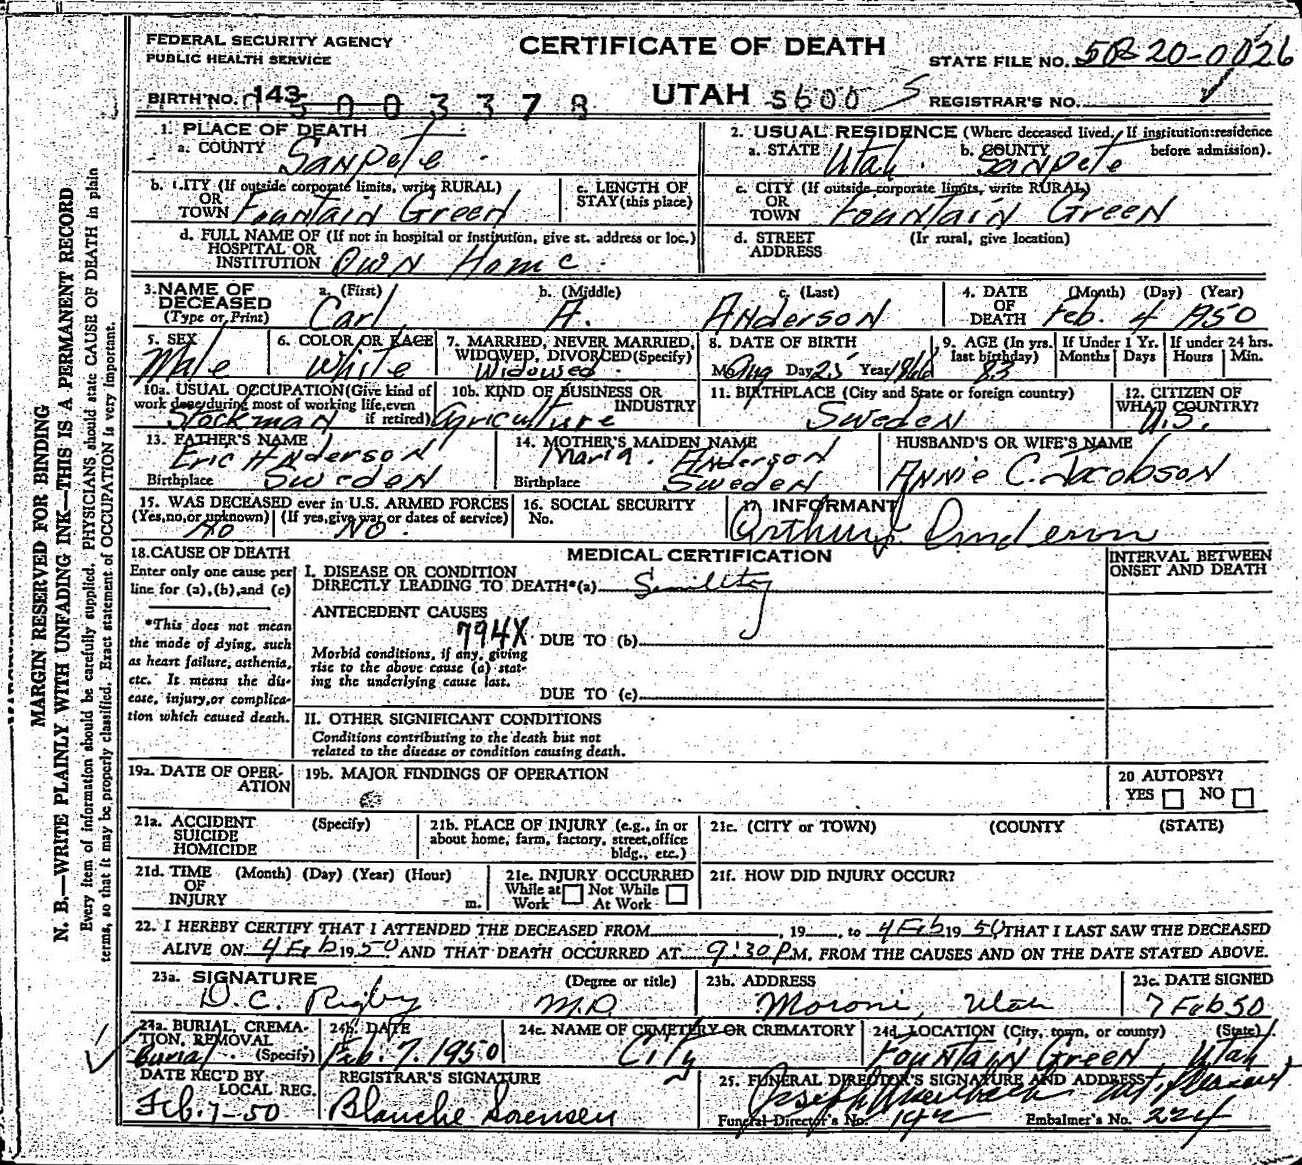 FEDERAL SECURITY AGENCY
PUBLIC HEALTH SERVICE
CERTIFICATE OF DEATH
STATE FILE NO. 50-20-0026
BIRTH NO. 143
UTAH
REGISTRAR'S NO.
1. PLACE OF DEATH
a. COUNTY Sanpete
2. USUAL RESIDENCE (Where deceased lived. If institution: residence before admission).
a. STATE Utah b. COUNTY Sanpete
b. CITY (If outside corporate limits, write RURAL)
OR
TOWN Fountain Green
c. LENGTH OF
STAY (this place)
c. CITY (If outside corporate limits, write RURAL)
OR
TOWN Fountain Green
d. FULL NAME OF (If not in hospital or institution, give st. address or loc.)
HOSPITAL OR
INSTITUTION Own Home
d. STREET (If rural, give location)
ADDRESS
3. NAME OF
DECEASED
(Type or Print)
a. (First) Carl
b. (Middle) A.
c. (Last) Anderson
4. DATE (Month) (Day) (Year)
OF
DEATH Feb. 4 1950
5. SEX
Male
6. COLOR OR RACE
White
7. MARRIED, NEVER MARRIED,
WIDOWED, DIVORCED (Specify)
Widowed
8. DATE OF BIRTH
Mo Aug Day 25 Year 1866
9. AGE (In yrs. last birthday)
83
If Under 1 Yr.
Months Days
If under 24 hrs.
Hours Min.
10a. USUAL OCCUPATION (Give kind of
work done during most of working life, even
if retired)
Stockman
10b. KIND OF BUSINESS OR
INDUSTRY
Agriculture
11. BIRTHPLACE (City and State or foreign country)
Sweden
12. CITIZEN OF
WHAT COUNTRY?
U.S.
13. FATHER'S NAME
Eric Anderson
Birthplace Sweden
14. MOTHER'S MAIDEN NAME
Maria Anderson
Birthplace Sweden
HUSBAND'S OR WIFE'S NAME
Annie C. Jacobson
15. WAS DECEASED ever in U.S. ARMED FORCES
(Yes, no, or unknown) (If yes, give war or dates of service)
No No.
16. SOCIAL SECURITY
No.
17. INFORMANT
Arthur J. Anderson
18. CAUSE OF DEATH
Enter only one cause per
line for (a), (b), and (c)
*This does not mean
the mode of dying, such
as heart failure, asthenia,
etc. It means the dis-
ease, injury, or complica-
tion which caused death.
MEDICAL CERTIFICATION
INTERVAL BETWEEN
ONSET AND DEATH
I. DISEASE OR CONDITION
DIRECTLY LEADING TO DEATH*(a) Senility
ANTECEDENT CAUSES
794X DUE TO (b)
Morbid conditions, if any, giving
rise to the above cause (a) stat-
ing the underlying cause last.
DUE TO (c)
II. OTHER SIGNIFICANT CONDITIONS
Conditions contributing to the death but not
related to the disease or condition causing death.
19a. DATE OF OPER-
ATION
19b. MAJOR FINDINGS OF OPERATION
20 AUTOPSY?
YES NO
21a. ACCIDENT (Specify)
SUICIDE
HOMICIDE
21b. PLACE OF INJURY (e.g., in or
about home, farm, factory, street, office
bldg., etc.)
21c. (CITY or TOWN) (COUNTY (STATE)
21d. TIME (Month) (Day) (Year) (Hour)
OF
INJURY m.
21e. INJURY OCCURRED
While at Not While
Work At Work
21f. HOW DID INJURY OCCUR?
22. I HEREBY CERTIFY THAT I ATTENDED THE DECEASED FROM , 19 , to 4 Feb 19 50 THAT I LAST SAW THE DECEASED
ALIVE ON 4 Feb 19 50 AND THAT DEATH OCCURRED AT 9:30 P M. FROM THE CAUSES AND ON THE DATE STATED ABOVE.
23a. SIGNATURE (Degree or title)
D. C. Rigby M.D
23b. ADDRESS
Moroni, Utah
23c. DATE SIGNED
7 Feb 50
24a. BURIAL, CREMA-
TION, REMOVAL
(Specify)
Burial
24b. DATE
Feb. 7, 1950
24c. NAME OF CEMETERY OR CREMATORY
City
24d. LOCATION (City, town, or county) (State)
Fountain Green Utah
DATE REC'D BY
LOCAL REG.
Feb. 7-50
REGISTRAR'S SIGNATURE
Blanche Sorensen
25. FUNERAL DIRECTOR'S SIGNATURE AND ADDRESS
Mt. Pleasant
Funeral Director's No. 142 Embalmer's No. 224
MARGIN RESERVED FOR BINDING
N. B.—WRITE PLAINLY WITH UNFADING INK—THIS IS A PERMANENT RECORD
Every item of information should be carefully supplied. PHYSICIANS should state CAUSE OF DEATH in plain
terms, so that it may be properly classified. Exact statement of OCCUPATION is very important.